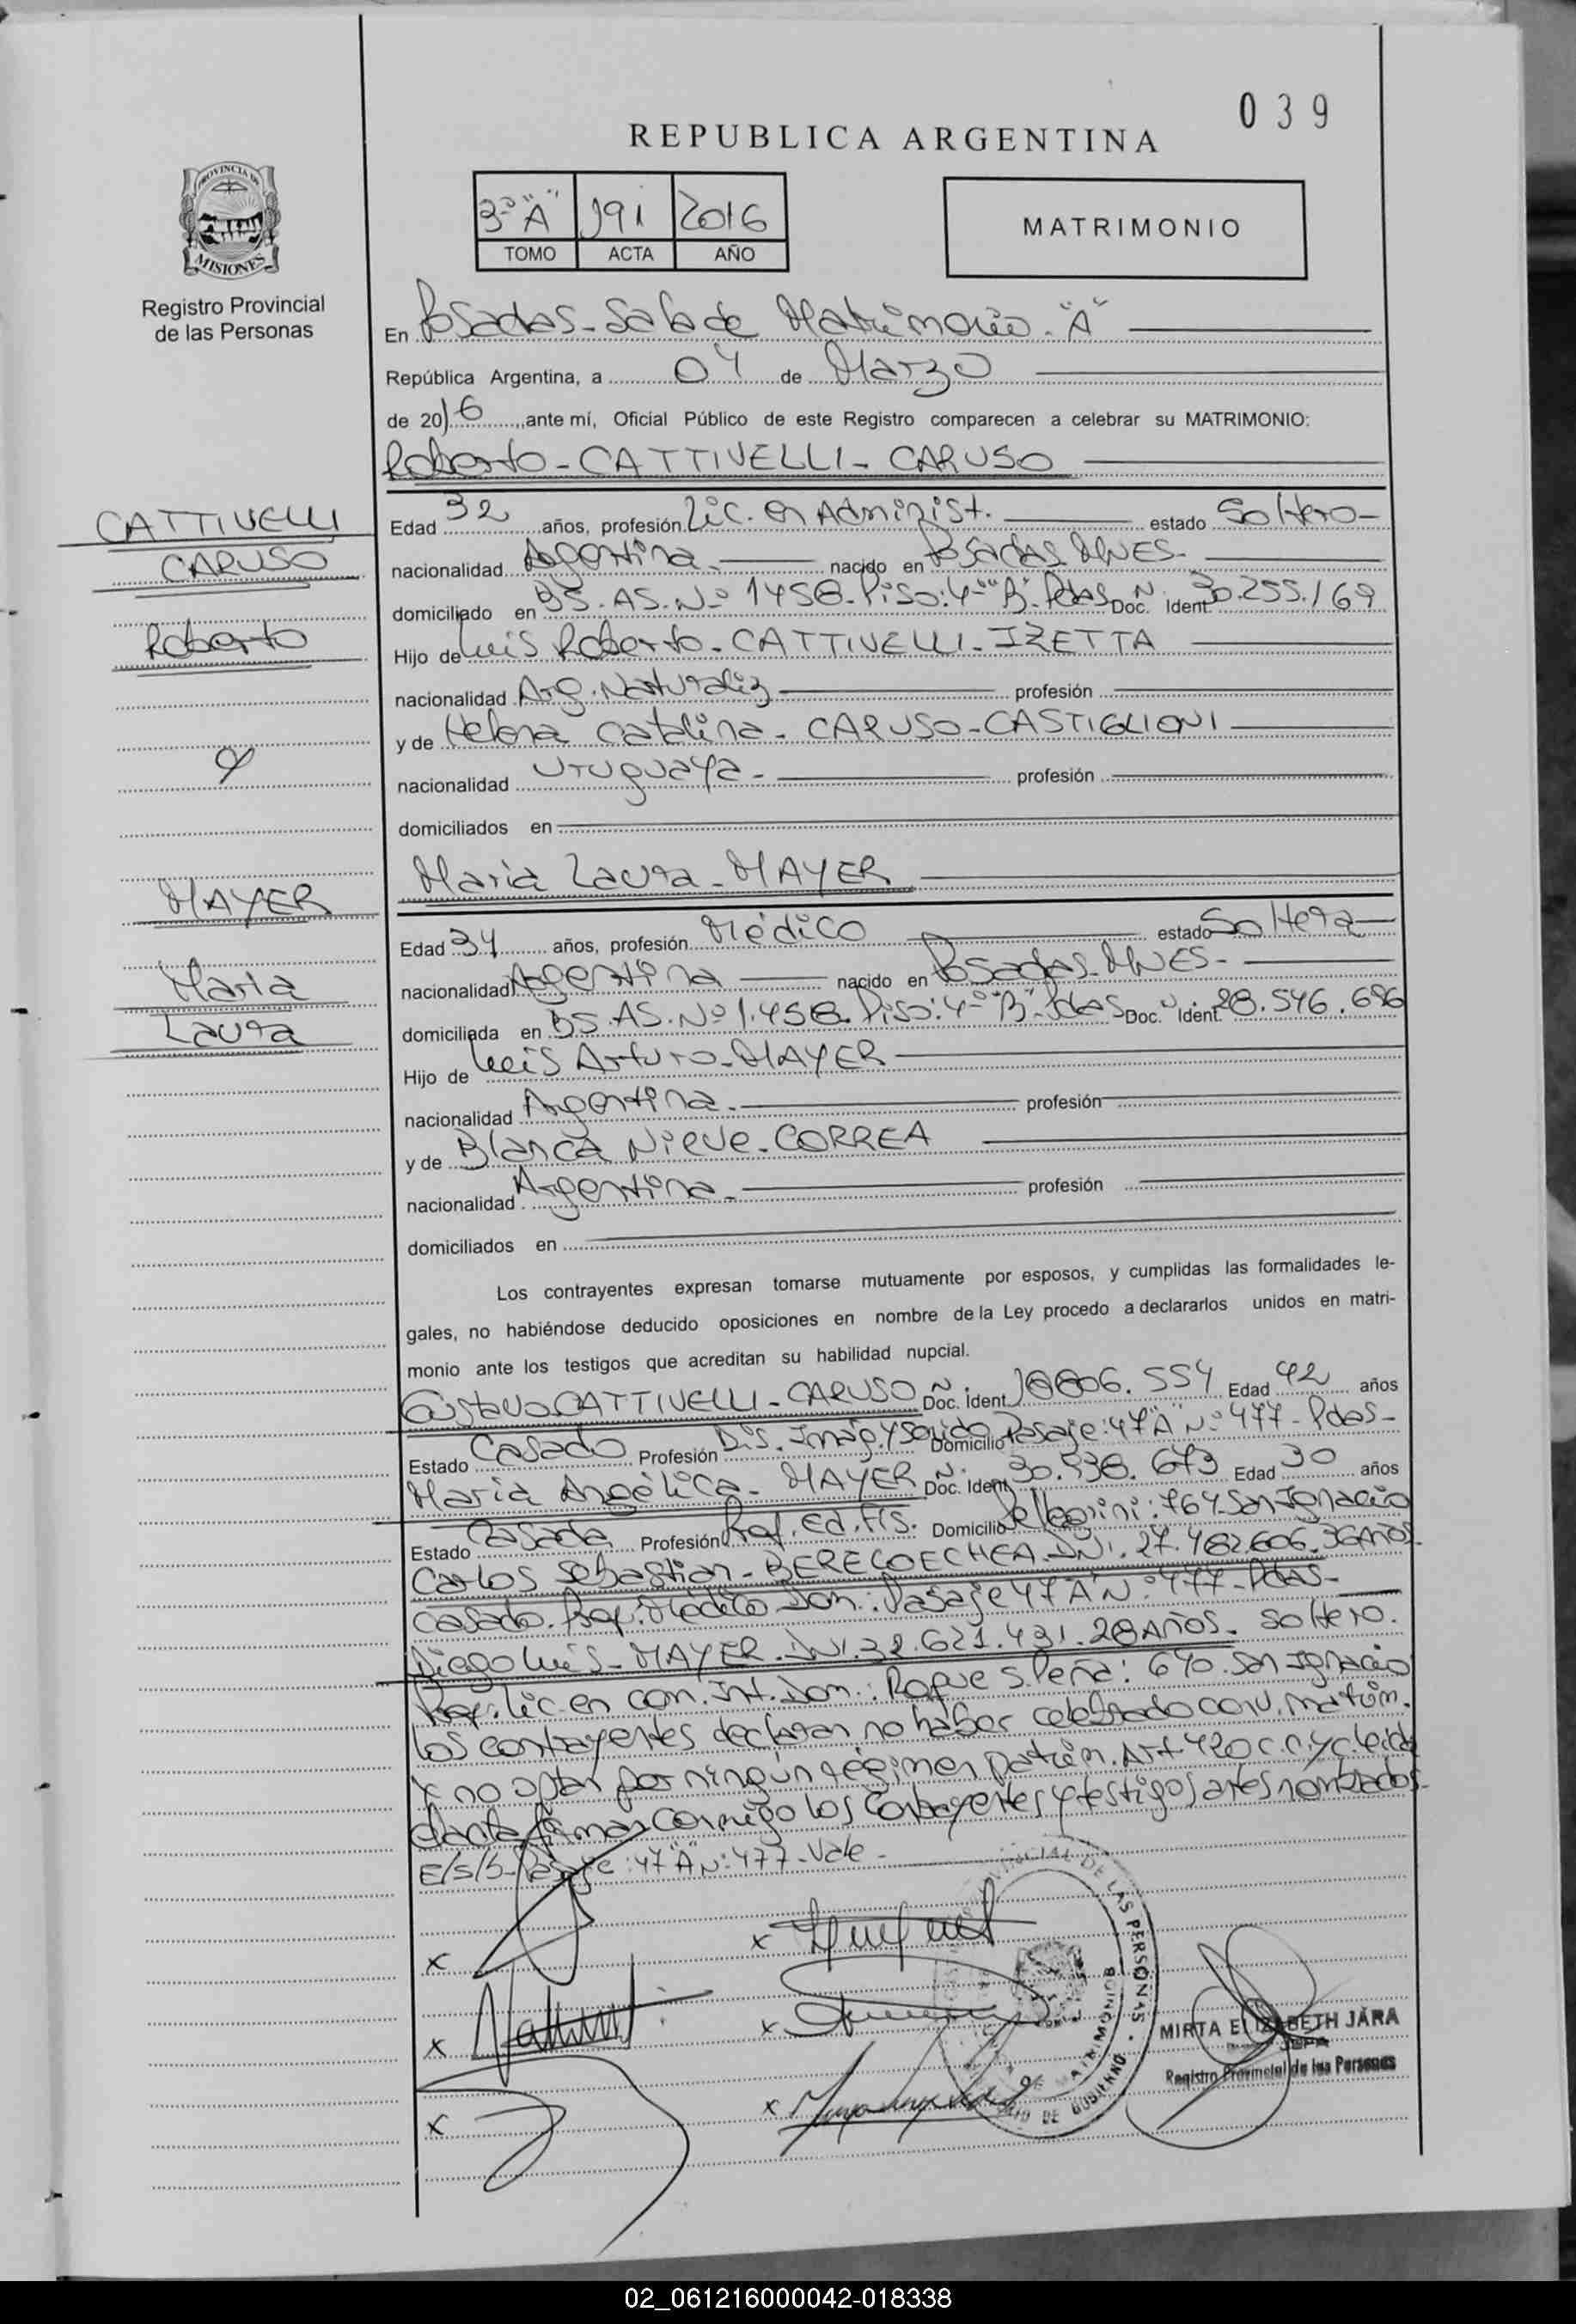 039
REPUBLICA ARGENTINA
3º "A" 191 2016
TOMO ACTA AÑO
MATRIMONIO
PROVINCIA DE
MISIONES
Registro Provincial
de las Personas
En Posadas - Sala de Matrimonio - "A"
República Argentina, a 04 de Marzo
de 2016, ante mí, Oficial Público de este Registro comparecen a celebrar su MATRIMONIO:
Roberto - CATTIVELLI - CARUSO
CATTIVELLI
CARUSO
Roberto
y
MAYER
Maria
Laura
Edad 32 años, profesión Lic. en Administ. estado Soltero -
nacionalidad Argentina. nacido en Posadas MNES.
domiciliado en BS. AS. Nº 1458 - Piso: 4º "B" - Pdas Doc. N. Ident 30.255.169
Hijo de Luis Roberto - CATTIVELLI - IZETTA
nacionalidad Arg. Naturaliz profesión
y de Helena Catalina - CARUSO - CASTIGLIONI
nacionalidad Uruguaya - profesión
domiciliados en
Maria Laura - MAYER
Edad 34 años, profesión Médico estado Soltera
nacionalidad Argentina nacido en Posadas - MNES -
domiciliada en BS. AS. Nº 1.458 - Piso: 4º "B" Pdas Doc. N. Ident. 28.546.696
Hijo de Luis Arturo - MAYER
nacionalidad Argentina. profesión
y de Blanca Nieve - CORREA
nacionalidad Argentina - profesión
domiciliados en
Los contrayentes expresan tomarse mutuamente por esposos, y cumplidas las formalidades le-
gales, no habiéndose deducido oposiciones en nombre de la Ley procedo a declararlos unidos en matri-
monio ante los testigos que acreditan su habilidad nupcial.
Gustavo CATTIVELLI - CARUSO Doc. N. Ident 554 Edad 42 años
Estado Casado Profesión Dis. Imag. y Sonido Domicilio Pasaje: 47 "A" Nº 477 - Pdas -
Maria Angélica - MAYER Doc. N. Ident 30. 673 Edad 30 años
Estado Casada Profesión Prof. Ed. Fís. Domicilio Pellegrini: 764 San Ignacio
Carlos Sebastian - BERECOECHEA. DNI. 27.462.606. 36 Años.
casado. Prof. Médico Dom.: Pasaje 47 "A" Nº 477 - Pdas -
Diego Luis - MAYER. DNI. 32.621.431. 28 Años. Soltero.
Prof. Lic. en com. Int. Dom.: Roque S. Peña: 640. San Ignacio
Los contrayentes declaran no haber celebrado conv. matrim.
y no optan por ningún régimen patrim. Art. 420 c.c. y c. Leída
el acta firman conmigo los contrayentes y testigos antes nombrados -
E/S/B - Pasaje: 47 "A" Nº: 477 - Vale -
x
x
x
x
x
x
PROVINCIAL DE LAS PERSONAS
MATRIMONIOS
DE GOBIERNO
MIRTA ELIZABETH JARA
JEFA
Registro Provincial de las Personas
02_061216000042-018338